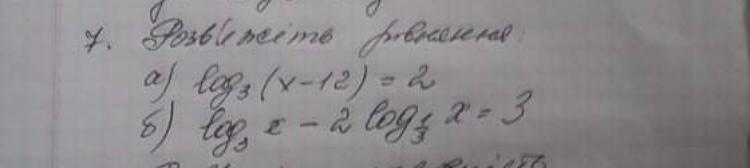 7. Розв'яжіть рівняння:
а) log₃(x-12) = 2
б) log₃ x - 2 log_{1/3} x = 3